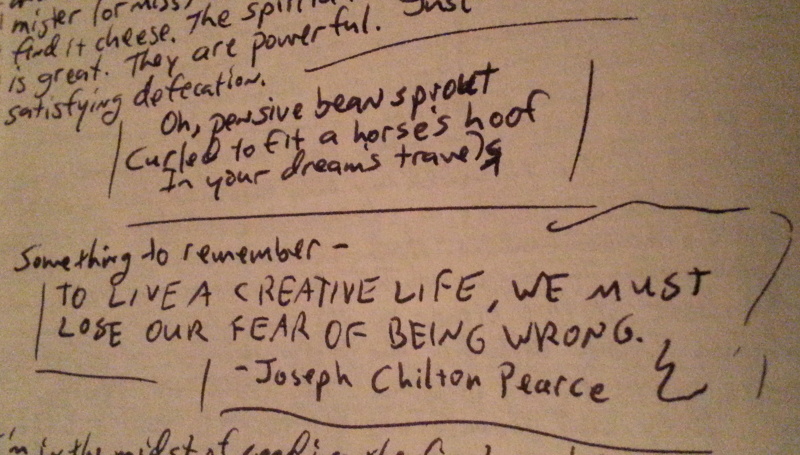 mister (or miss)
find it cheese. The spirit Just
is great. They are powerful.
satisfying defecation.
Oh, pensive bean sprout
Curled to fit a horse's hoof
In your dream's travels
Something to remember -
TO LIVE A CREATIVE LIFE, WE MUST
LOSE OUR FEAR OF BEING WRONG.
- Joseph Chilton Pearce
I'm in the midst of